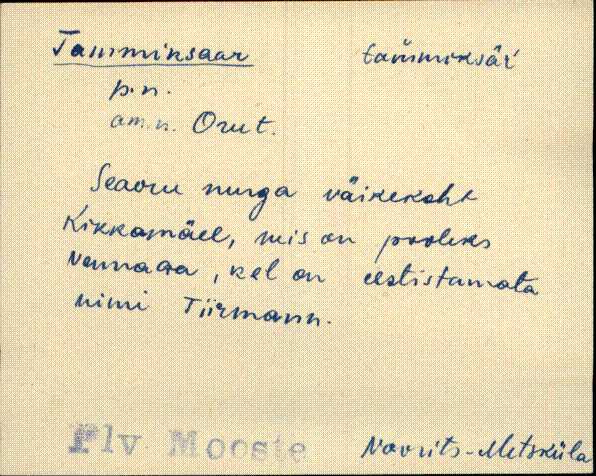 Tammiksaar tammiksàr
p.n.
am.n. Orut.
Seaoru nurga väikekoht
Kikkamäel, mis on pooleks
vennaga, kel on eestistamata
nimi Tiirmann.
Plv Mooste Noorits-Metsküla